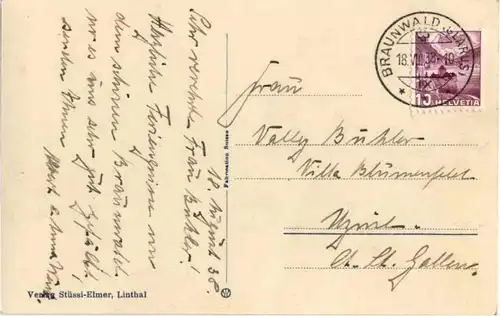 18. August 38.
Sehr verehrte Frau Bühler!
Herzliche Feriengrüsse von
dem schönen Braunwald.
wo es uns sehr gut gefällt.
senden Ihnen
Verlag Stüssi-Elmer, Linthal
Fabrication Suisse
BRAUNWALD (GLARUS)
18.VIII.38-10
15 HELVETIA
Frau
Vally Bühler
Villa Blumenfeld
Uzwil
Ct. St. Gallen.